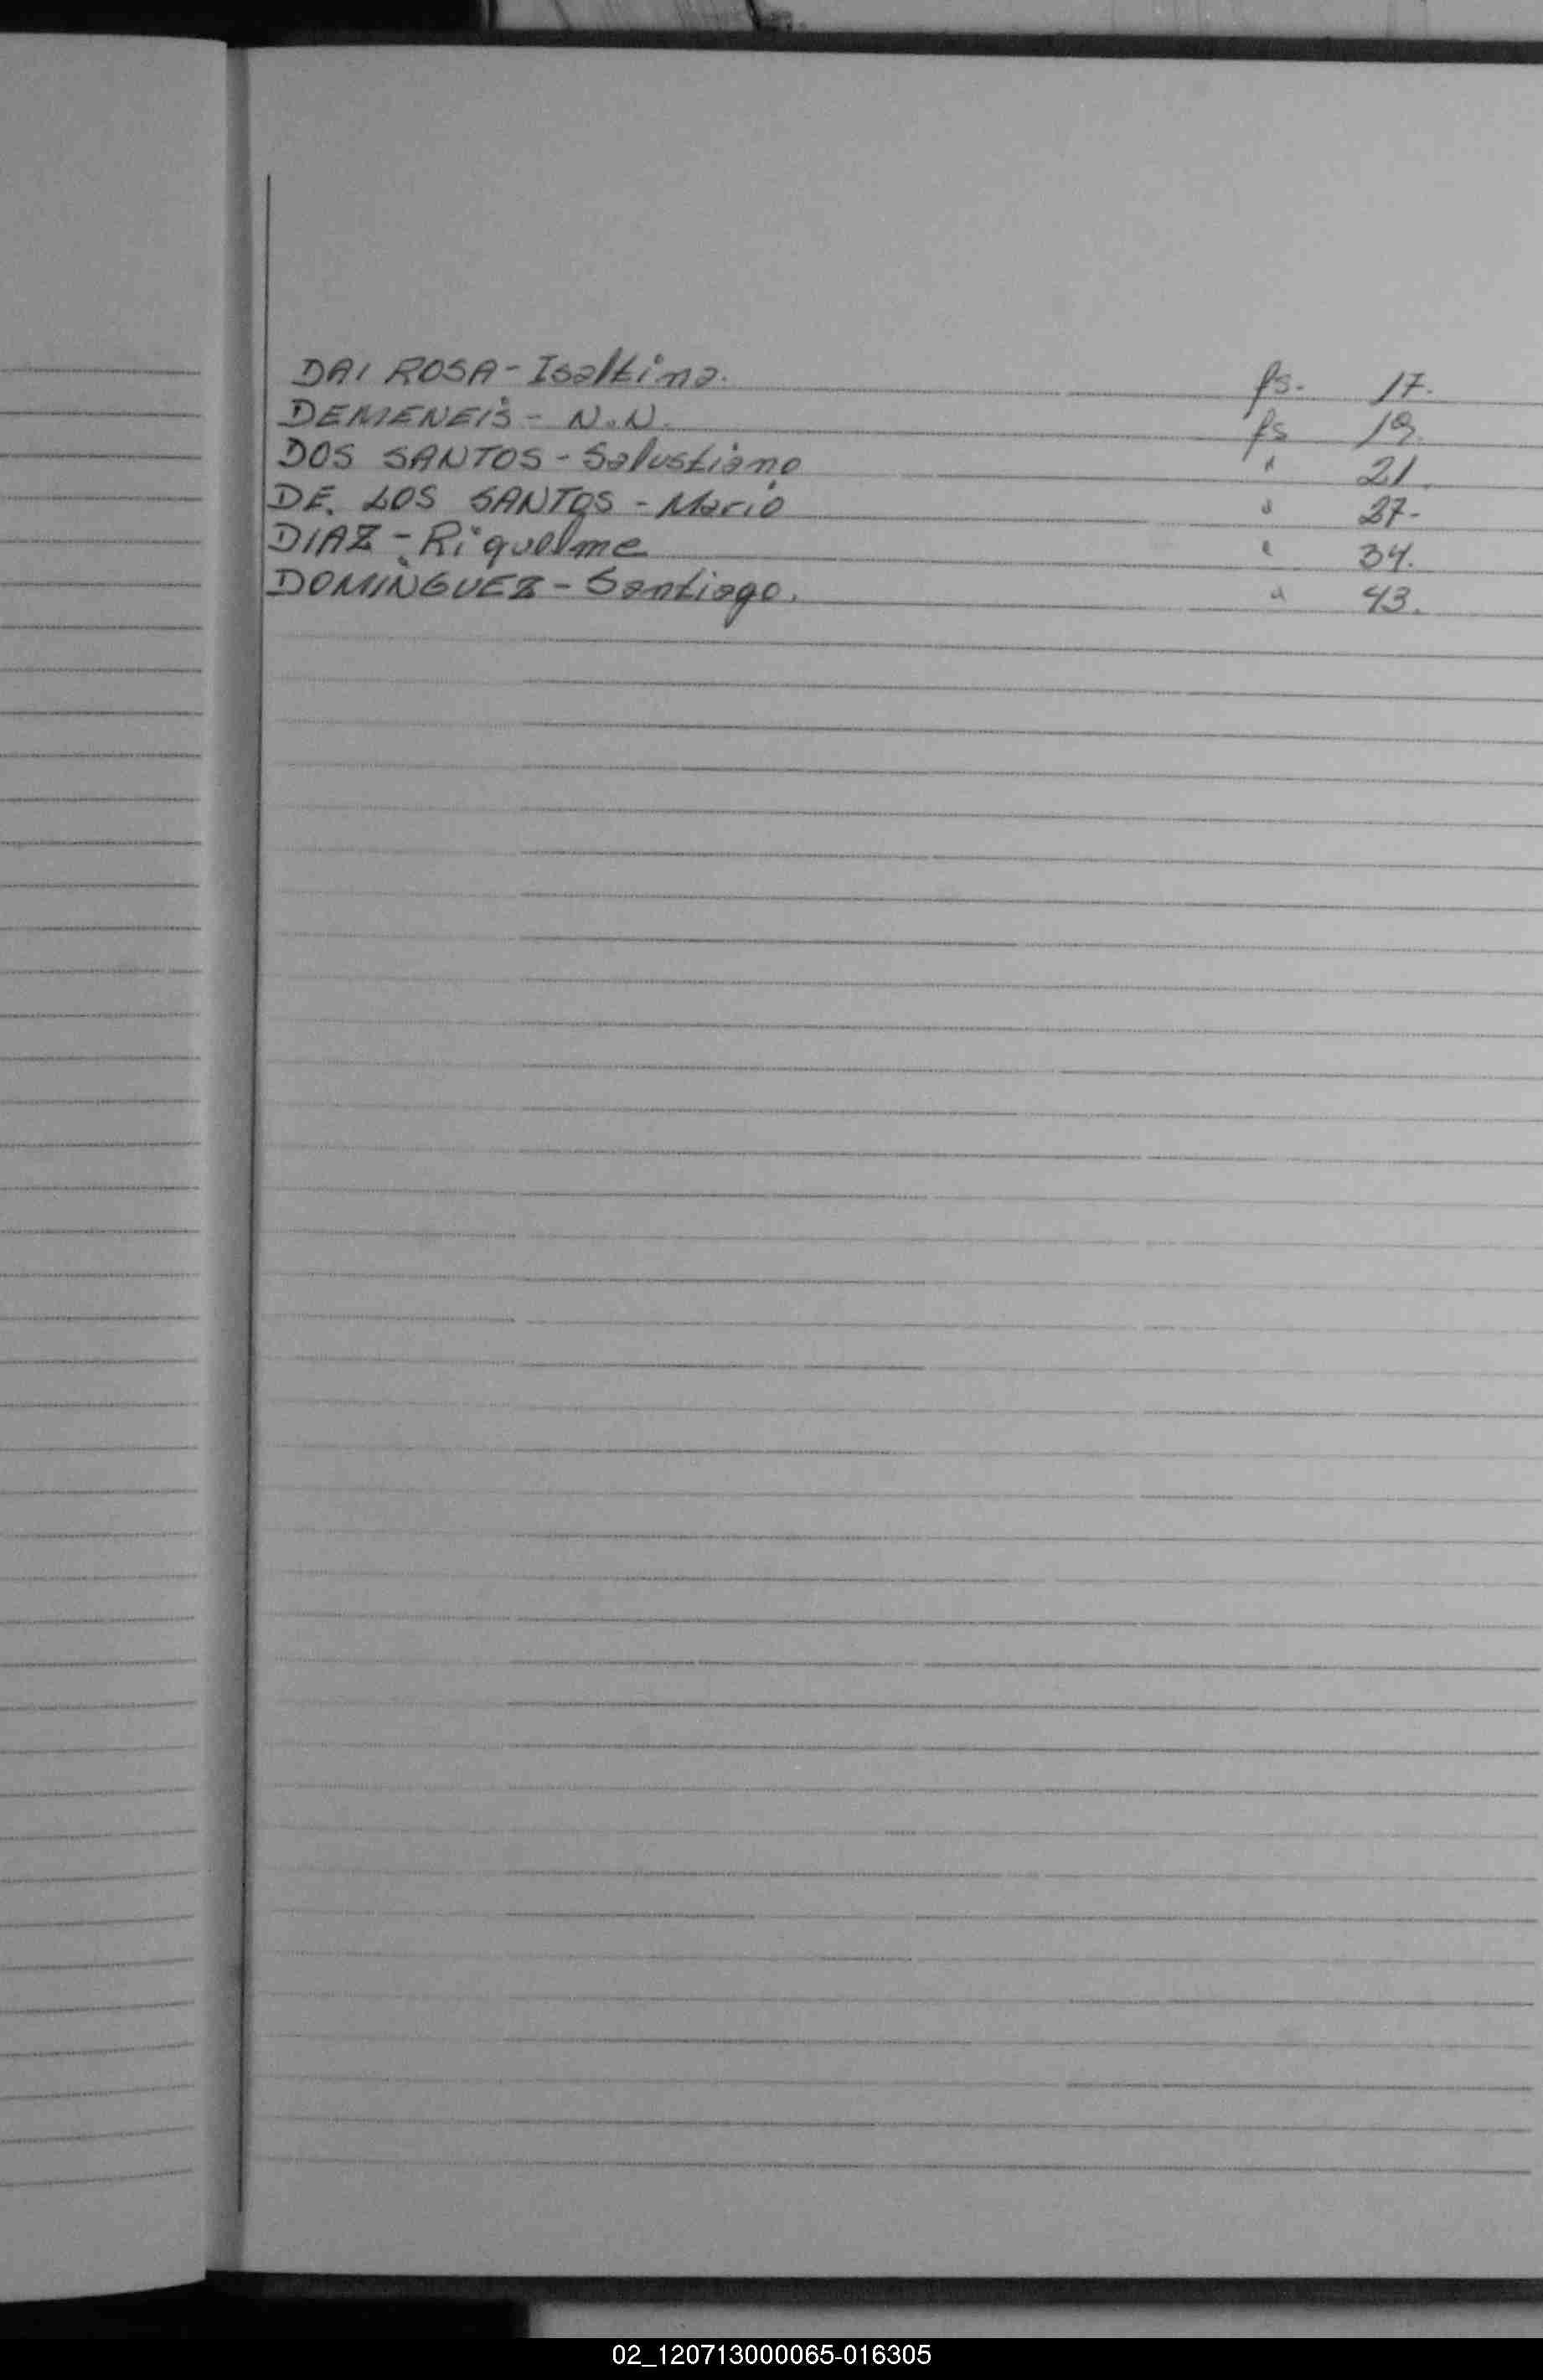 DAI ROSA - Isaltina. fs. 17.
DEMENEIS - N.N. fs 19.
DOS SANTOS - Salustiano " 21.
DE. LOS SANTOS - Mario " 27-
DIAZ - Riquelme " 34.
DOMINGUEZ - Santiago. " 43.
02_120713000065-016305